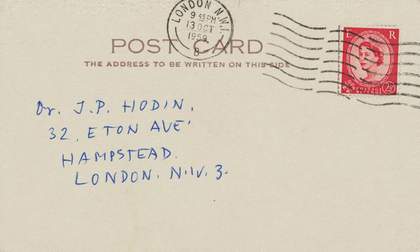 LONDON N.W.1
9 45 PM
13 OCT
1959
POST CARD
THE ADDRESS TO BE WRITTEN ON THIS SIDE
E R
Dr. J.P. HODIN,
32, ETON AVE'
HAMPSTEAD.
LONDON. N.W. 3.